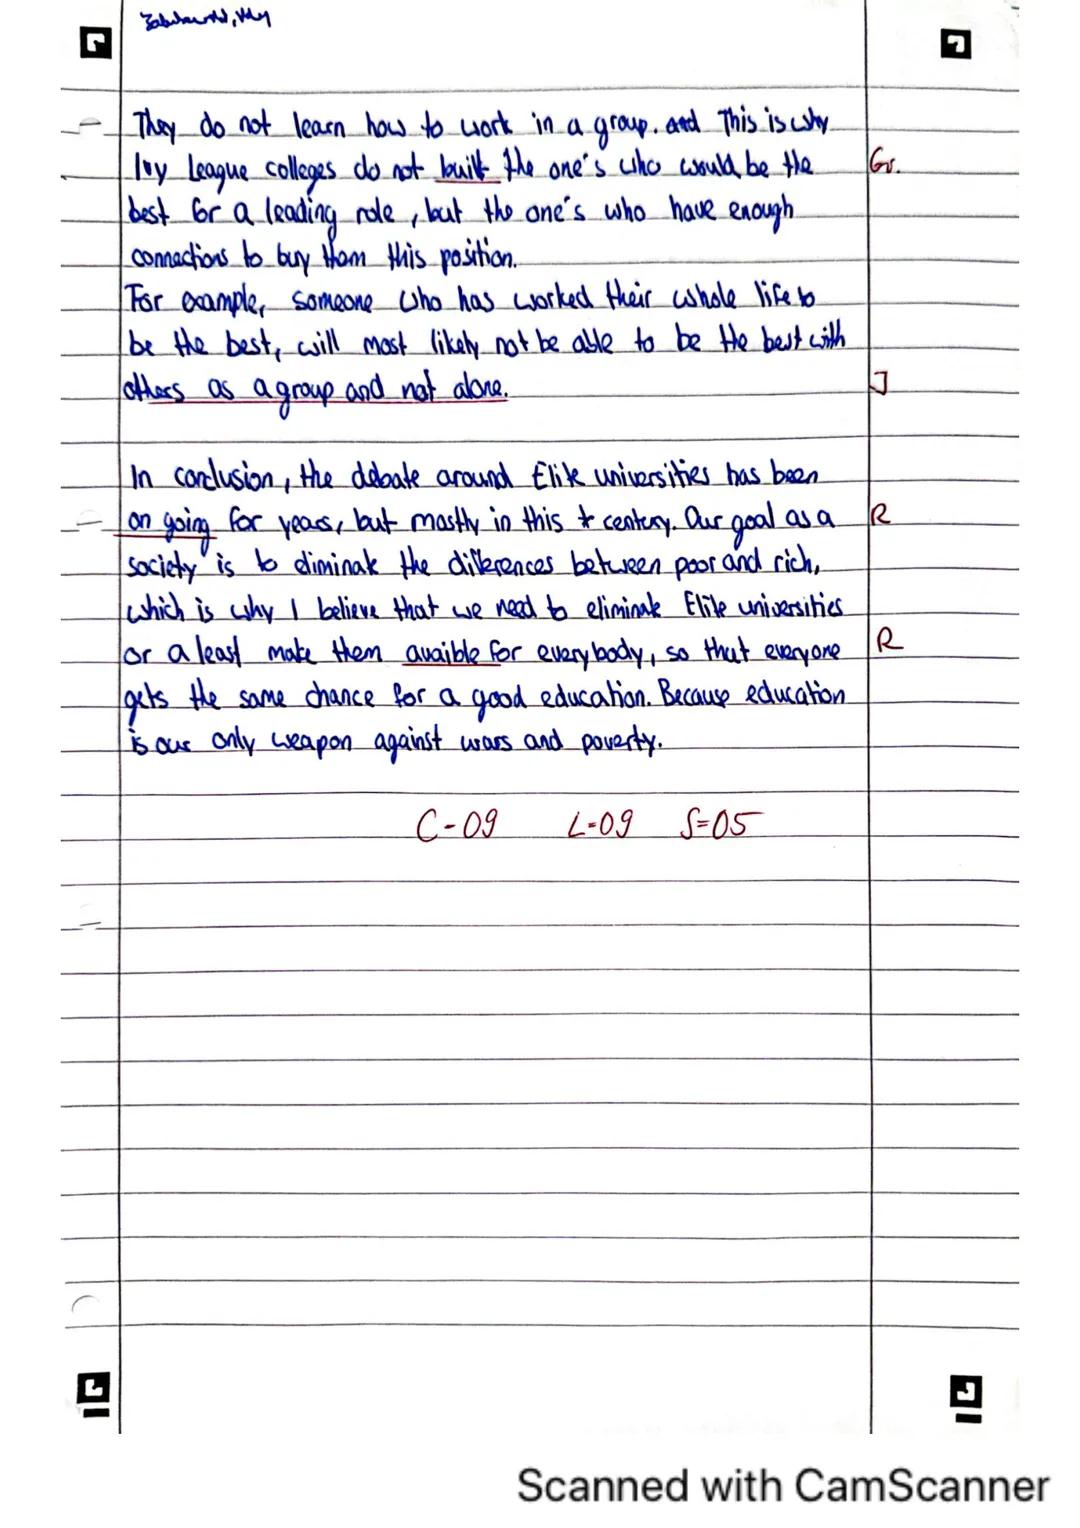 They do not learn how to work in a group. and This is why
Ivy League colleges do not built the one's who would be the Gr.
best for a leading role, but the one's who have enough
connections to buy them this position.
For example, someone who has worked their whole life to
be the best, will most likely not be able to be the best with
others as a group and not alone. J
In conclusion, the debate around Elite universities has been
on going for years, but mostly in this century. Our goal as a R
society is to eliminate the differences between poor and rich,
which is why I believe that we need to eliminate Elite universities
or a least make them avaible for everybody, so that everyone R
gets the same chance for a good education. Because education
is our only weapon against wars and poverty.
C-09 L-09 S=05
Scanned with CamScanner